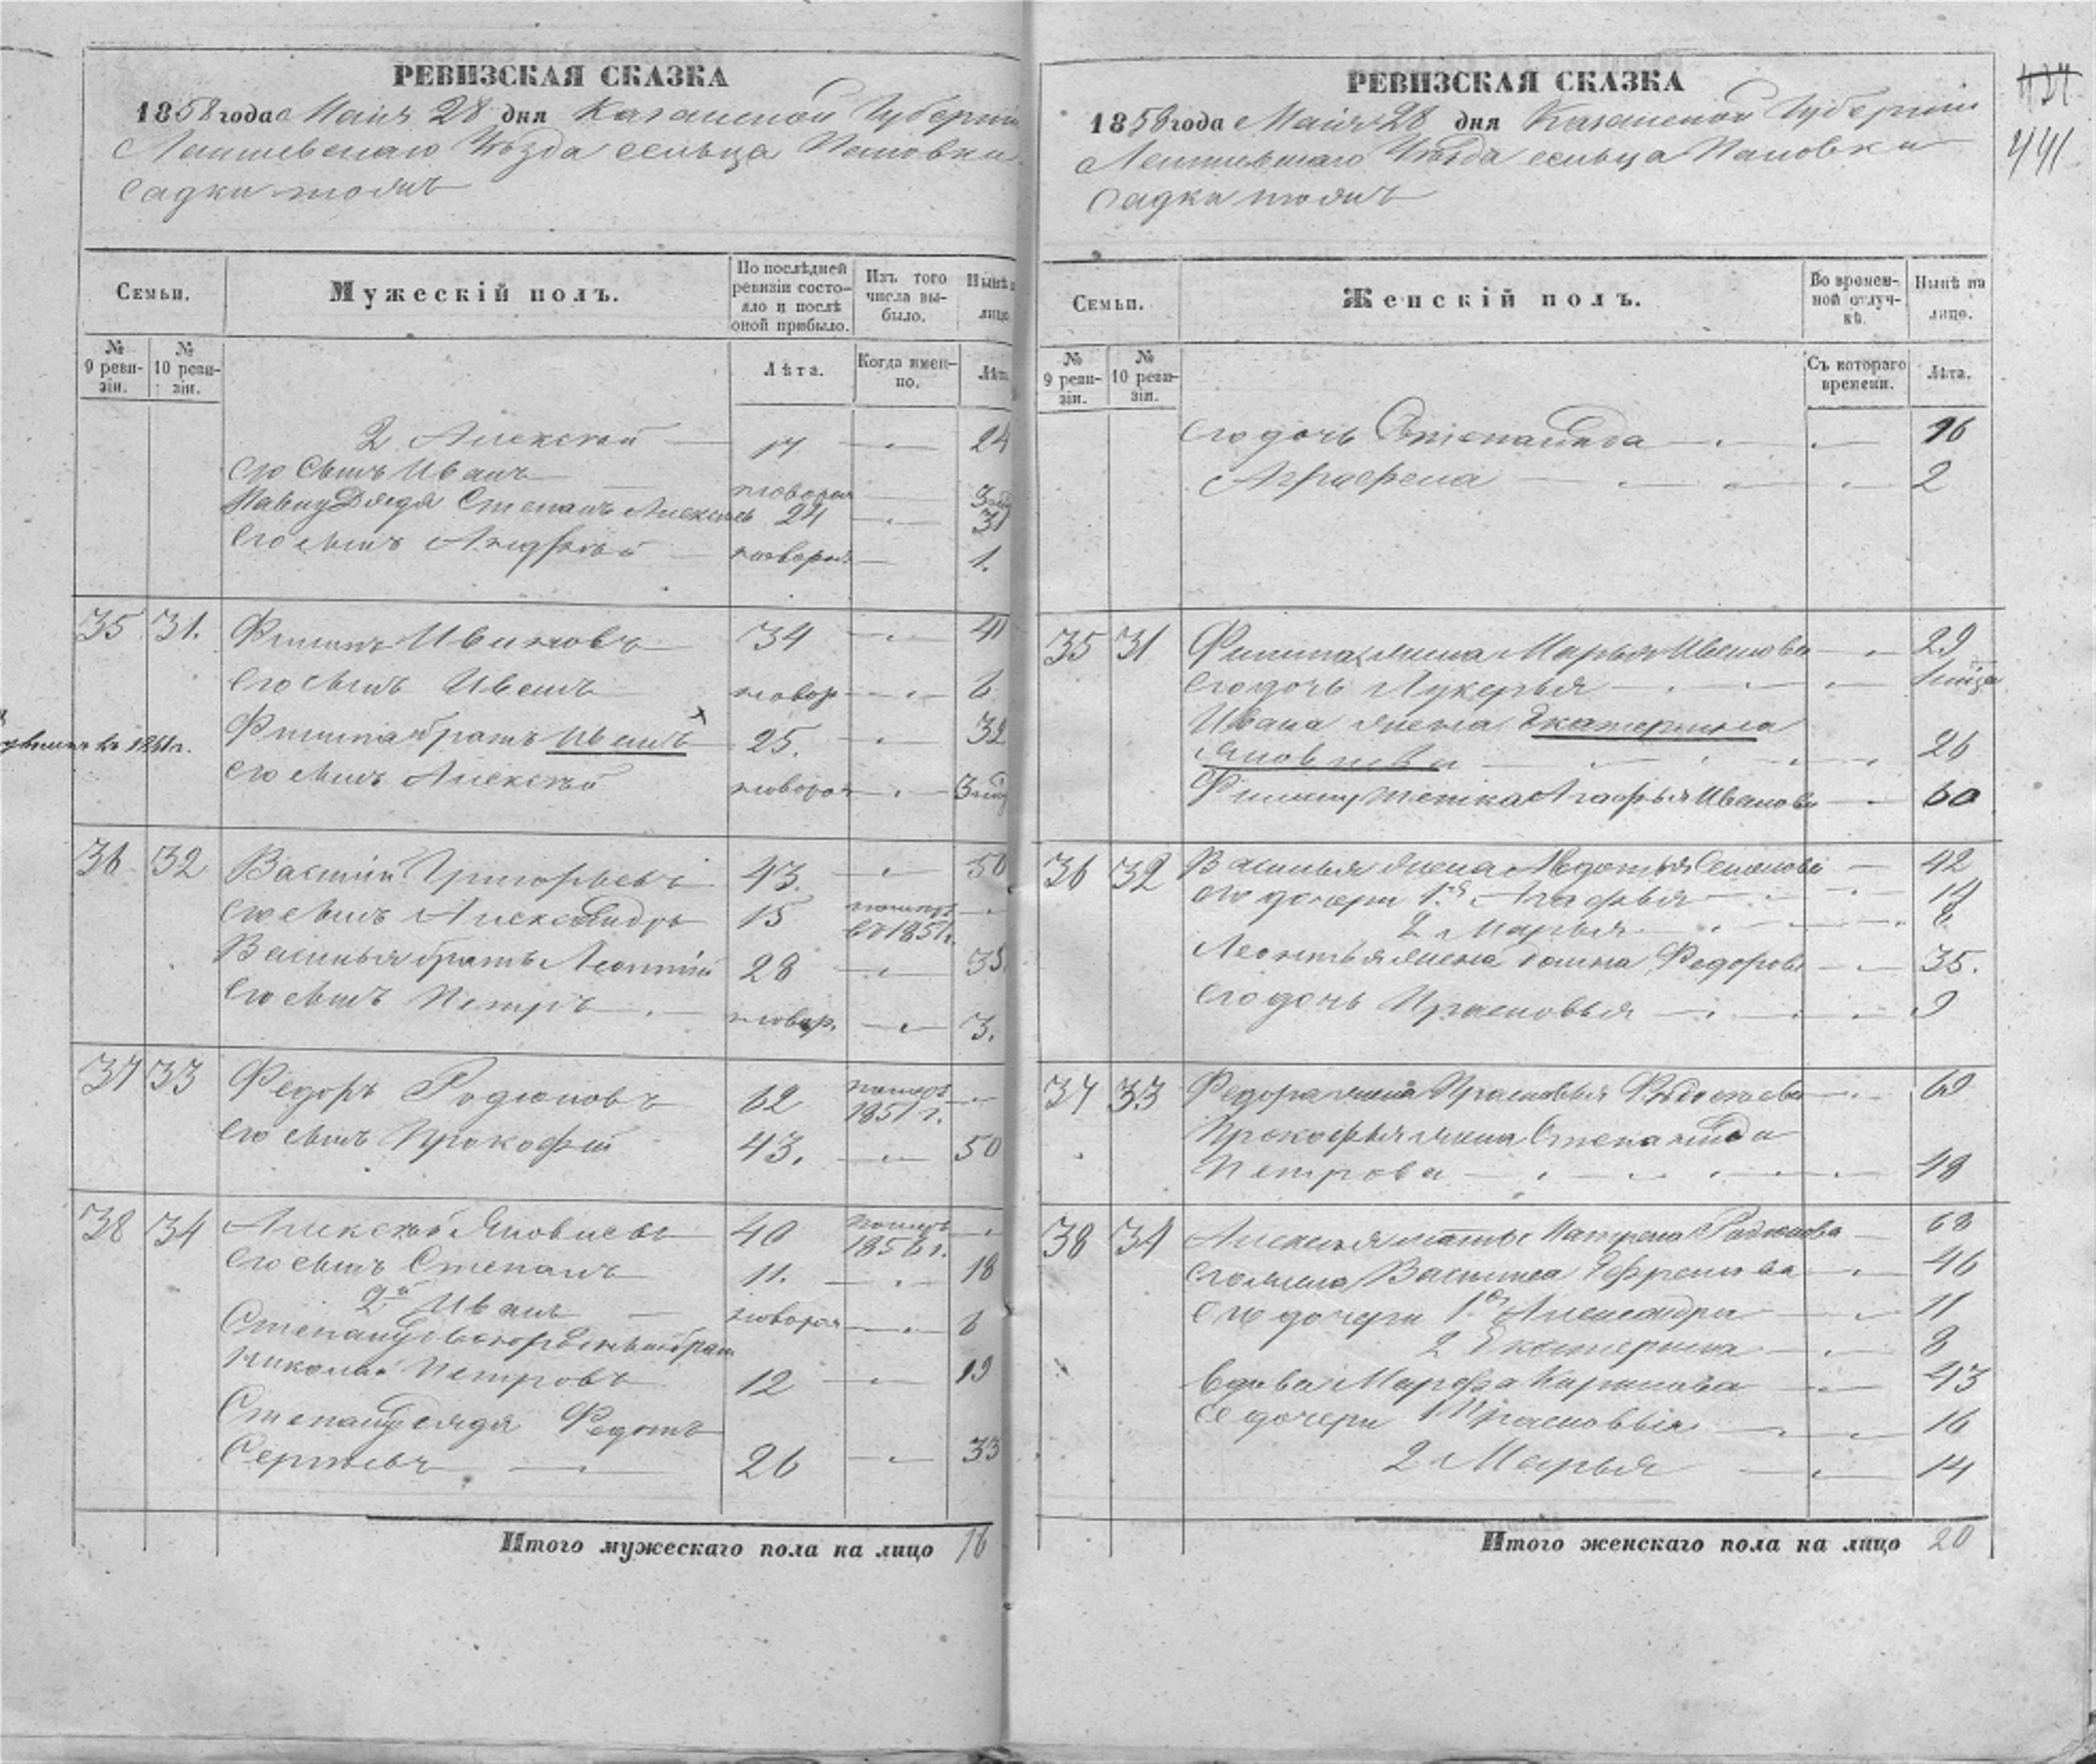 РЕВИЗСКАЯ СКАЗКА
1858 года Маія 28 дня Казанской Губерніи
Лаишевскаго Уѣзда сельца Поповки
Садки тожъ
Семьи.
Мужескій полъ.
По послѣдней ревизіи состояло и послѣ оной прибыло.
Изъ того числа выбыло.
Нынѣ
лицо
№ 9 ревизіи.
№ 10 ревизіи.
Лѣта.
Когда именно.
Лѣта
2 Алексѣй 17 24
Его сынъ Иванъ новорож
Павлу дядя Степанъ Алексѣевъ 24 31
Его сынъ Андрей новорож 1.
35 31. Филипъ Ивановъ 34 41
Его сынъ Иванъ новор 6
Филипа братъ Иванъ 25. 32
въ 1861 г.
Его сынъ Алексѣй новорож
36 32 Василій Григорьевъ 43. 50
Его сынъ Александръ 15 въ 1851 г.
Василья братъ Леонтій 28 35
Его сынъ Петръ новор. 3.
37 33 Федоръ Родіоновъ 62 1851 г.
Его сынъ Прокофій 43. 50
38 34 Алексѣй Яковлевъ 40 1856 г.
Его сынъ Степанъ 11. 18
2й Иванъ новорож 6
Степану двоюродный братъ
Николай Петровъ 12 19
Степану дядя Федотъ
Сергѣевъ 26 33
Итого мужескаго пола на лицо 16
РЕВИЗСКАЯ СКАЗКА
1858 года Маія 28 дня Казанской Губерніи
Лаишевскаго Уѣзда сельца Поповки
Садки тожъ
434
441
Семьи.
Женскій полъ.
Во временной отлучкѣ.
Нынѣ на лицо.
№ 9 ревизіи.
№ 10 ревизіи.
Съ котораго времени.
Лѣта.
Его дочь Степанида 16
Аграфена 2
35 31 Филипа жена Марья Иванова 29
Его дочь Лукерья
Ивана жена Екатерина
Яковлева 26
Филипу тетка Агафья Иванова 60
36 32 Василья жена Авдотья Семенова 42
Его дочери 1я Агафья 14
2 Марья 8
Леонтья жена Домна Федорова 35.
Его дочь Прасковья 9
37 33 Федора жена Прасковья 69
Прокофья жена Степанида
Петрова 48
38 34 Алексея мать Матрена Родионова 68
Его жена Василиса Ефремова 46
Его дочери 1я Александра 11
2 Екатерина 8
Вдова Марфа Карпова 43
Ее дочери 1 Прасковья 16
2 Марья 14
Итого женскаго пола на лицо 20